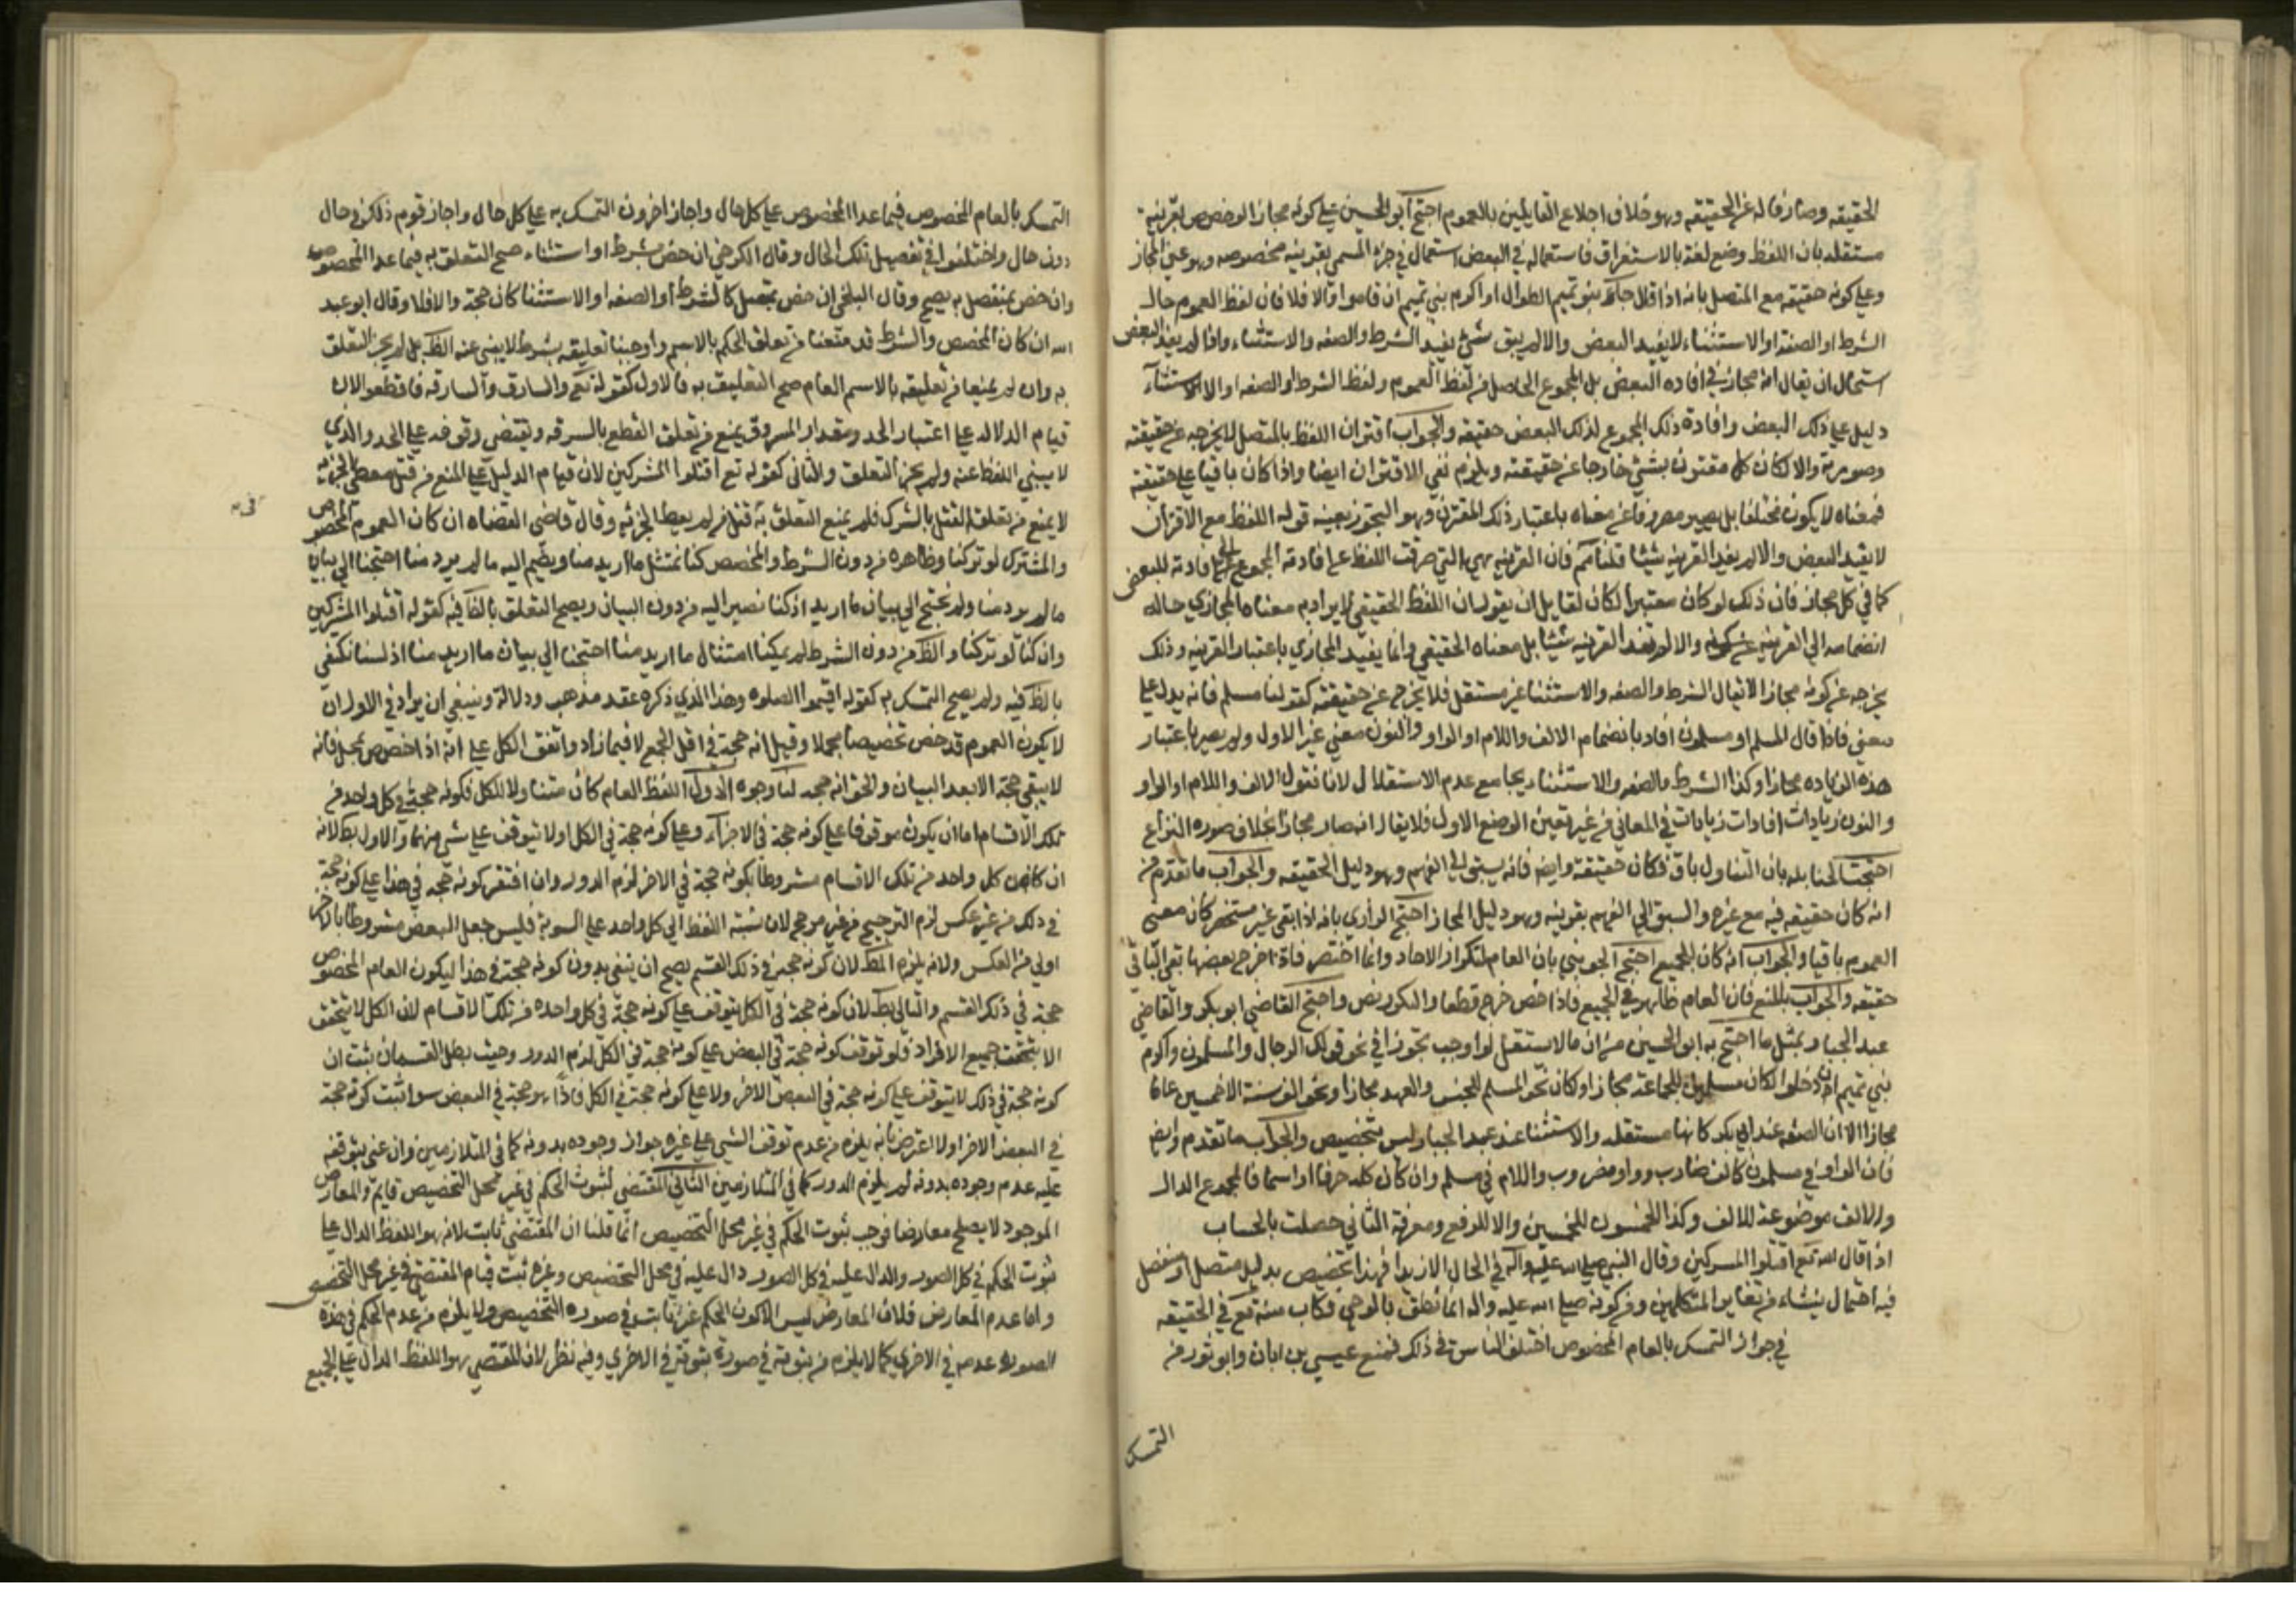 الحقيقه وصارفا له عن الحقيقه وهو خلاف اجماع القايلين بالعموم احتج ابو الحسين على كونه مجازا لو خص بقرينة
مستقله بان اللفظ وضع لغة بالاستغراق فاستعماله في البعض استعمال في جزء المسمى بقرينه مخصوصه وهو عنى المجاز
وعلى كونه حقيقه مع المتصل بانه اذا قال جاء بنو تميم الطوال او اكرم بني تميم ان قاموا والا فلا فان لفظ العموم حال
الشرط او الصفة او الاستثناء لا يفيد البعض والا لم يبق شئ يفيد الشرط والصفه والاستثناء واذا لم يفد البعض
استحال ان يقال انه مجاز في افاده البعض بل المجموع الحاصل من لفظ العموم ولفظ الشرط او الصفه او الاستثناء
دليل على ذلك البعض وافادة ذلك المجموع لذلك البعض حقيقه والجواب اقتران اللفظ بالمتصل لا يخرجه عن حقيقته
وصورته والا لكان كل مقترن بشئ خارجا عن حقيقته ويلزم نفي الاقتران ايضا واذا كان باقيا على حقيقته
فمعناه لا يكون مختلفا بل يصير مصروفا عن معناه باعتبار ذلك المقترن وهو التجوز بعينه قوله اللفظ مع الاقران
لا يفيد البعض والا لم يفد القرينه شيئا قلنا نعم فان القرينه هي التي صرفت اللفظ عن افادته المجموع الى افادته للبعض
كما في كل مجاز فان ذلك لو كان معتبرا لكان لقايل ان يقول ان اللفظ الحقيقي لا يراد به معناه المجازي حاله
انضمامه الى القرينه والا لم تفد القرينه شيئا بل معناه الحقيقي وانما يفيد المجازي باعتبار القرينه وذلك
يخرجه عن كونه مجازا لا يقال الشرط والصفه والاستثنا غير مستقل فلا يخرج عن حقيقته كقولنا مسلم فانه يدل على
معنى فاذا قال المسلم او مسلمون افاد بانضمام الالف واللام او الواو والنون معنى غير الاول ولم يصر باعتبار
هذه الزياده مجازا وكذا الشرط والصفه والاستثناء بجامع عدم الاستقلال لانا نقول الالف واللام او الواو
والنون زيادات افادات زيادات في المعاني من غير تغيير الوضع الاول فلا يقال انه صار مجازا بخلاف صوره النزاع
احتجت الحنابله بان التناول باق فكان حقيقة وايضا فانه يسبق الى الفهم وهو دليل الحقيقه والجواب ما تقدم من
انه كان حقيقه فيه مع غيره والسبق الى الفهم بقرينه وهو دليل المجاز احتج الرازي بانه اذا بقي غير منحصر كان معنى
العموم باقيا والجواب انه كان للجميع احتج الجويني بان العام لتكرار الاحاد وانما اختصر فاذا خرج بعضها بقي الباقي
حقيقه والجواب بالمنع فان العام ظاهر في الجميع فاذا خص خرج قطعا والمكرر نص واحتج القاضي ابو بكر والقاضي
عبد الجبار بمثل ما احتج به ابو الحسين من ان ما لا يستقل لو اوجب تجوزا في نحو قولك الرجال والمسلمون واكرم
بني تميم ان دخلوا لكان مسلمون للجماعة مجازا ولكان نحو المسلم للجنس والعهد مجازا ونحو الف سنة الا خمسين عاما
مجازا الا ان الصفه عند ابي بكر كانها مستقله والاستثنا عند عبد الجبار ليس بتخصيص والجواب ما تقدم وايضا
فان الواو في مسلمون كالف ضارب وواو مضروب واللام في مسلم وان كان كله حرفا او اسما فالمجموع الدال
والالف موضوعة للالف وكذا الخمسون للخمسين والا للرفع ومعرفة الثاني حصلت بالحساب
اذا قال الله تعالى اقتلوا المشركين وقال النبي صلى الله عليه وآله في الحال الا زيدا فهذا تخصيص بدليل متصل او منفصل
فيه احتمال ينشاء من تغاير المتكلمين ومن كونه صلى الله عليه واله انما نطق بالوحي فكان منه تعالى في الحقيقه
في جواز التمسك بالعام المخصوص اختلف الناس في ذلك فمنع عيسى بن ابان وابو ثور من
التمسك
التمسك بالعام المخصوص فيما عدا المخصوص على كل حال واجاز اخرون التمسك به على كل حال واجاز قوم ذلك في حال
دون حال واختلفوا في تفصيل تلك الحال وقال الكرخي ان خص بشرط او استثناء صح التعلق به فيما عدا المخصوص
وان خص بمنفصل لم يصح وقال البلخي ان خص بمتصل كالشرط او الصفه او الاستثنا كان حجة والا فلا وقال ابو عبد
الله ان كان المخصص والشرط قد منعنا من تعلق الحكم بالاسم واوجبنا تعليقه بشرط لا ينبئ عنه الظ بل لم يجز التعلق
به وان لم يمنعا من تعليقه بالاسم العام صح التعليق به فالاول كقوله تع والسارق والسارقه فاقطعوا لان
قيام الدلاله على اعتبار الحد ومقدار المسروق يمنع من تعلق القطع بالسرقه ويقتضى وقوفه على الحد والذي
لا ينبئ اللفظ عنه ولم يجز التعلق والثانى كقوله تع اقتلوا المشركين لان قيام الدليل على المنع من قتل معطى الجزيه
لا يمنع من تعلق القتل بالشرك فلم يمنع التعلق به قتل من لم يعط الجزيه وقال قاضى القضاه ان كان العموم المخصوص
والمشترك لو تركنا وظاهره من دون الشرط والمخصص كنا نمتثل ما اريد منا ويضم اليه ما لم يرد منا احتجنا الى بيان
ما لم يرد منا ولم نحتج الى بيان ما اريد اذ كنا نصير اليه من دون البيان ويصح التعلق بالظ فيه كقوله اقتلوا المشركين
وان كنا لو تركنا والظ من دون الشرط لم يمكنا امتثال ما اريد منا احتجنا الى بيان ما اريد منا اذ لسنا نكتفى
بالظ فيه ولم يصح التمسك به كقوله اقيموا الصلوه وهذا الذي ذكره عقد مذهب ودلالة وينبغى ان يزاد في الاول ان
لا يكون العموم قد خص تخصيصا مجملا وقيل انه حجة في اقل الجمع لا فيما زاد واتفق الكل على انه اذا خصص بمجمل فانه
لا يبقى حجة الا بعد البيان والحق انه حجه لنا وجوه الاول اللفظ العام كان متناولا للكل فكونه حجة في كل واحد من
تلك الاقسام اما ان يكون موقوفا على كونه حجة فى الاجزاء وعلى كونه حجة في الكل او لا يتوقف على شئ منهما والاول بط لانه
ان كان كل واحد من تلك الاقسام مشروطا بكونه حجة في الاخر لزم الدور وان افتقر كونه حجه في هذا على كونه حجة
في ذلك من غير عكس لزم الترجيح من غير مرجح لان نسبة اللفظ الى كل واحد على السوية فليس جعل البعض مشروطا بالاخر
اولى من العكس ولانه يلزم المط لان كونه حجة في ذلك القسم يصح ان يبقى بدون كونه حجة في هذا ليكون العام المخصوص
حجة في ذلك القسم والثانى بط لان كونه حجة في الكل يتوقف على كونه حجة في كل واحده من تلك الاقسام لان الكل لا يتحقق
الا بتحقق جميع الافراد فلو توقف كونه حجة في البعض على كونه حجة فى الكل لزم الدور وحيث بطل القسمان ثبت ان
كونه حجة في ذلك لا يتوقف على كونه حجة في البعض الاخر ولا على كونه حجة في الكل فاذا هو حجة في البعض سوا ثبت كونه حجة
في البعض الاخر او لا اعترض بانه يلزم من عدم توقف الشيئ على غيره جواز وجوده بدونه كما في المتلازمين وان عنى بتوقفه
عليه عدم وجوده بدونه لم يلزم الدور كما في المتلازمين الثاني المقتضي لثبوت الحكم في غير محل التخصيص قايم والمعارض
الموجود لا يصلح معارضا فوجب ثبوت الحكم في غير محل التخصيص انما قلنا ان المقتضى ثابت لانه هو اللفظ الدال على
ثبوت الحكم في كل الصور والدال عليه في كل الصور دال عليه في محل التخصيص وغيره ثبت قيام المقتضي في غير محل التخصيص
واما عدم المعارض فلان المعارض ليس الا كون الحكم غير ثابت في صوره التخصيص ولا يلزم من عدم الحكم في هذه
الصوره عدمه في الاخرى كما لا يلزم من ثبوته في صورة ثبوته في الاخرى وفيه نظر لان المقتضي هو اللفظ الدال على الجميع